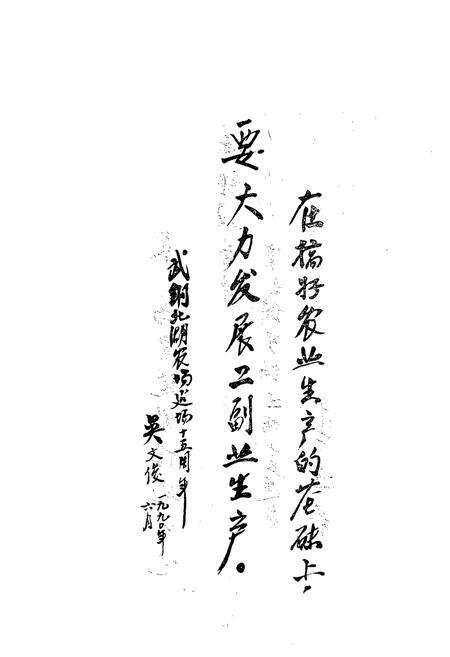 在搞好农业生产的基础上，
要大力发展工副业生产。
武钢北湖农场建场十五周年
吴文俊
一九九〇年
六月